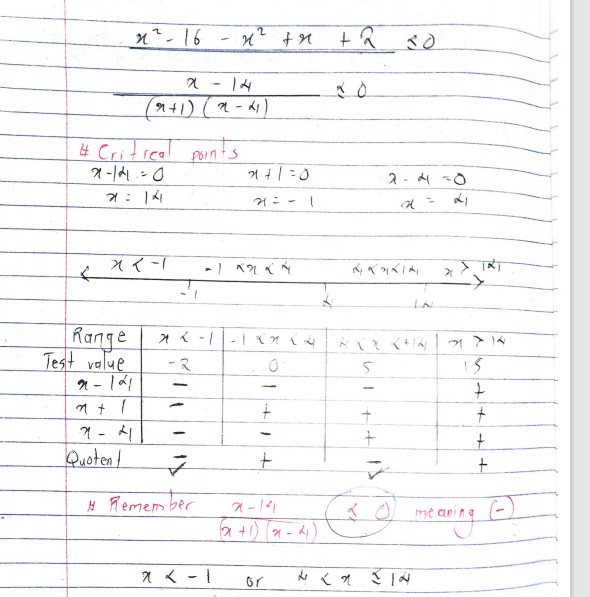 x² - 16 - x² + x + 2 ≤ 0
x - 14 ≤ 0
(x+1) (x - 4)
# Critical points
x - 14 = 0 x + 1 = 0 x - 4 = 0
x = 14 x = - 1 x = 4
x < -1 -1 < x < 4 4 < x < 14 x > 14
-1 4 14
Range x < -1 -1 < x < 4 4 < x < +14 x > 14
Test value -2 0 5 15
x - 14 - - - +
x + 1 - + + +
x - 4 - - + +
Quotent - + - +
✓ ✓
# Remember x - 14 ≤ 0 meaning (-)
(x+1) (x - 4)
x < - 1 or 4 < x ≤ 14